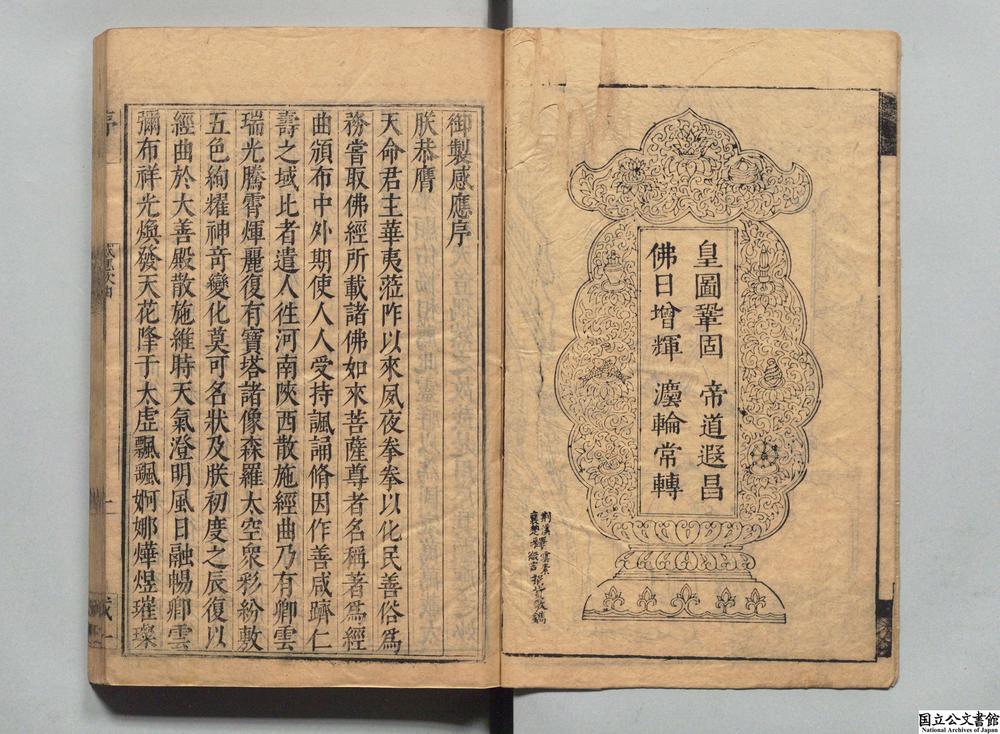 皇圖鞏固 帝道遐昌
佛日增輝 灋輪常轉
御製感應序
朕恭膺
天命君主華夷蒞阼以來夙夜拳拳以化民善俗爲
務嘗取佛經所載諸佛如來菩薩尊者名稱著爲經
曲頒布中外期使人人受持諷誦脩因作善咸躋仁
壽之域比者遣人徃河南陝西散施經曲乃有卿雲
瑞光騰霄煇麗復有寶塔諸像森羅太空衆彩紛敷
五色絢耀神竒變化莫可名狀及朕初度之辰復以
經曲於大善殿散施維時天氣澄明風日融暢卿雲
彌布祥光煥發天花降于太虛飄颻婀娜燁煜璀璨
国立公文書館
National Archives of Japan